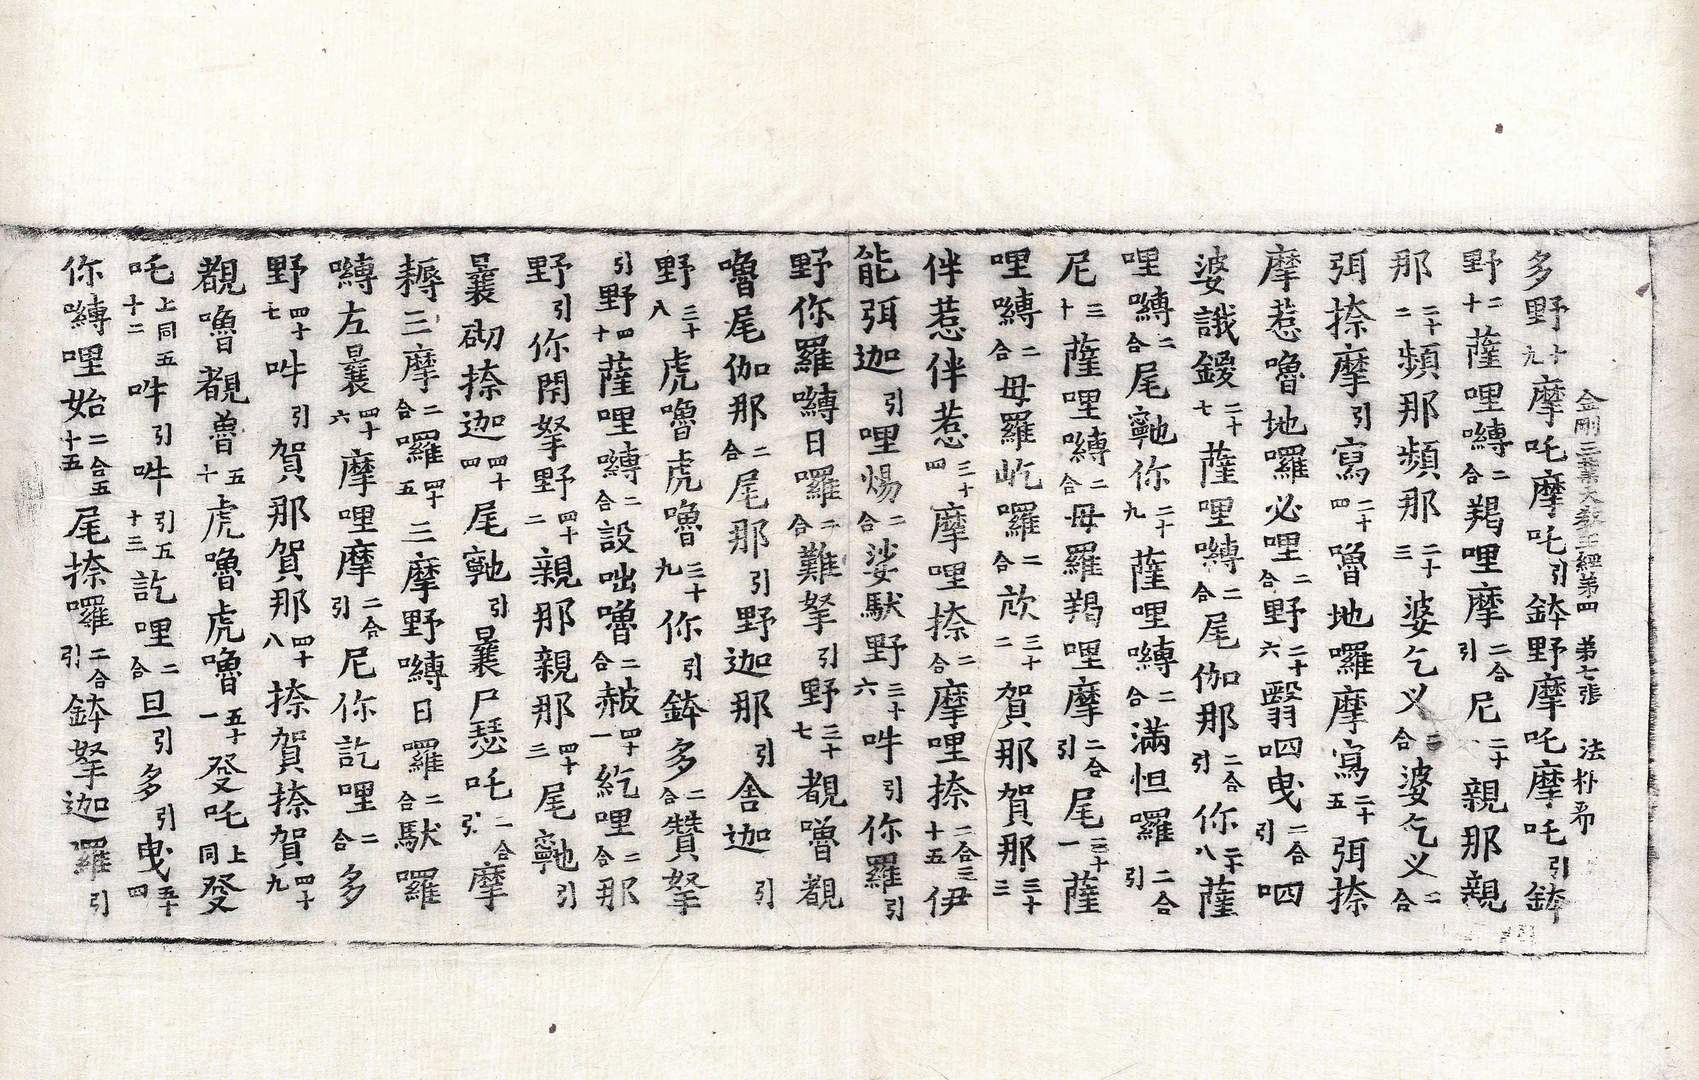 金剛三業大教王經第四　第七張　法朴希
多野十九摩吒摩吒引鉢野摩吒摩吒引鉢
野二十薩哩嚩二合羯哩摩二合引尼二十一親那親
那二十二頻那頻那二十三婆乞义二合婆乞义二合
弭捺摩引寫二十四嚕地囉摩寫二十五弭捺
摩惹嚕地囉必哩二合野二十六翳呬曳二合引呬
婆誐鑁二十七薩哩嚩二合尾伽那二合引你二十八薩
哩嚩二合尾䩭你二十九薩哩嚩二合滿怛囉二合引
尼三十薩哩嚩二合母羅羯哩摩二合引尾三十一薩
哩嚩二合母羅屹囉二合㰦三十二賀那賀那三十三
伴惹伴惹三十四摩哩捺二合摩哩捺二合三十五伊
能弭迦引哩煬二合娑馱野三十六吽引你羅引
野你羅嚩日囉二合難拏引野三十七覩嚕覩
嚕尾伽那二合尾那引野迦那引舍迦引
野三十八虎嚕虎嚕三十九你引鉢多二合贊拏
引野四十薩哩嚩二合設咄嚕二合赧四十一紇哩二合那
野引你閉拏野四十二親那親那四十三尾䩭引
曩砌捺迦四十四尾䩭引曩尸瑟吒二合引摩
耨三摩二合囉四十五三摩野嚩日囉二合馱囉
嚩左曩四十六摩哩摩二合引尼你訖哩二合多
野四十七吽引賀那賀那四十八捺賀捺賀四十九
覩嚕覩嚕五十虎嚕虎嚕五十一癹吒上同癹
吒上同五十二吽引吽引五十三訖哩二合旦引多引曳五十四
你嚩哩始二合五十五尾捺囉二合引鉢拏迦羅引